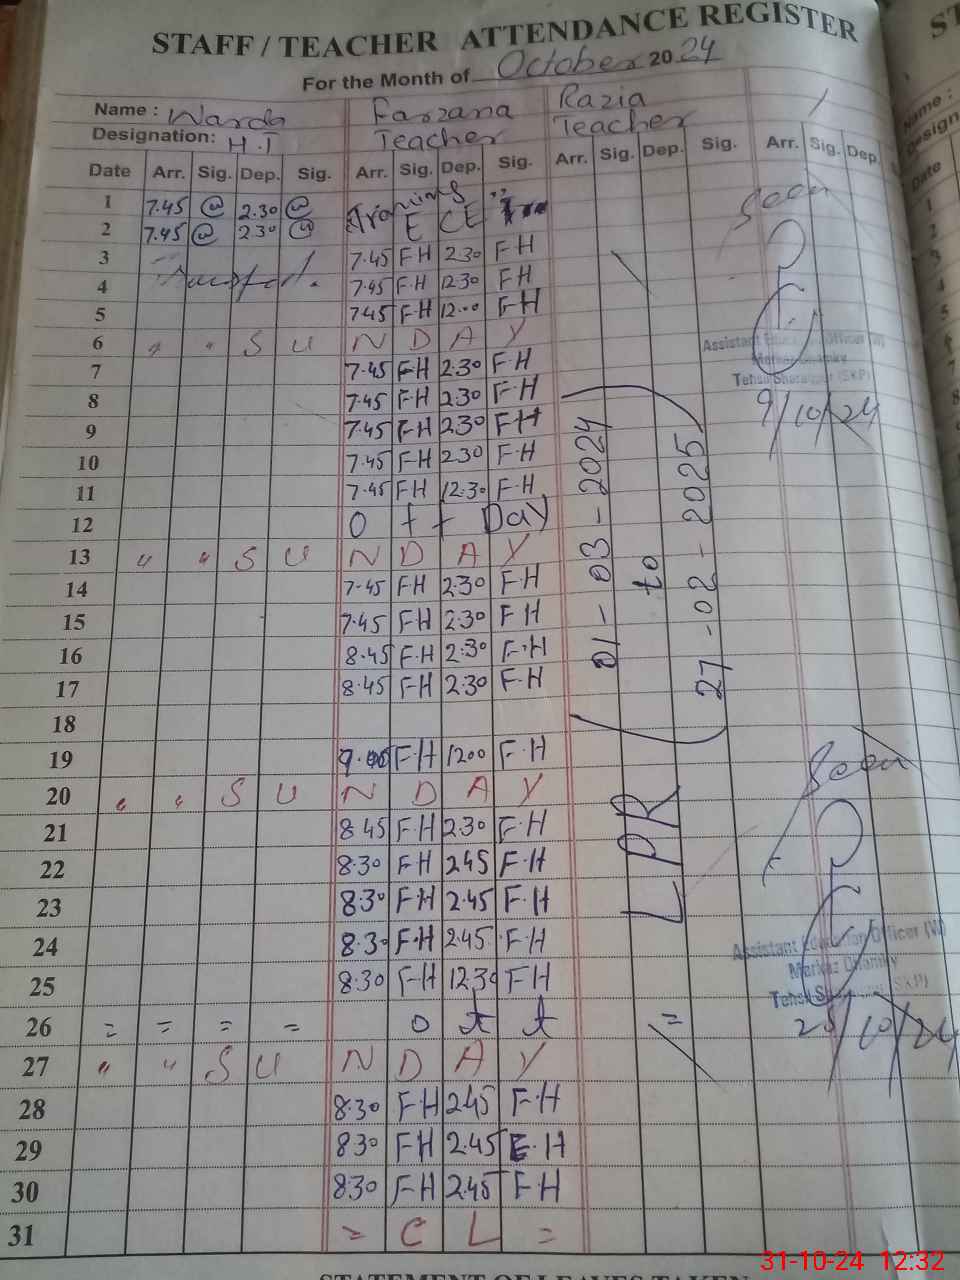 STAFF / TEACHER ATTENDANCE REGISTER
For the Month of October 2024
Name : Warda Farzana Razia
Designation: H.T Teacher Teacher
Date Arr. Sig. Dep. Sig. Arr. Sig. Dep. Sig. Arr. Sig. Dep. Sig. Arr. Sig. Dep.
1 7.45 @ 2.30 @ Training
2 7.45 @ 2.30 @ E CE
3 7.45 F H 2.30 F H
4 7.45 F.H 12.30 F H
5 7.45 F.H 12.00 F H
6 " " S U N D A Y
7 7.45 F H 2.30 F.H
8 7.45 F H 2.30 F.H
9 7.45 F H 2.30 F H
10 7.45 F.H 2.30 F.H
11 7.45 F H 12.30 F.H
12 O f f Day
13 " " S U N D A Y
14 7.45 F H 2.30 F.H
15 7.45 F H 2.30 F H
16 8.45 F.H 2.30 F.H
17 8.45 F.H 2.30 F.H
18
19 F.H 1200 F.H
20 " " S U N D A Y
21 8.45 F.H 2.30 F.H
22 8.30 F H 2.45 F.H
23 8.30 F H 2.45 F.H
24 8.30 F.H 2.45 F.H
25 8.30 F H 12.30 F H
26 = = = = o f f =
27 " " S U N D A Y
28 8.30 F H 2.45 F.H
29 8.30 F H 2.45 F.H
30 8.30 F H 2.45 F H
31 = C L =
01 - 03 - 2024
to
27 - 02 - 2025
LPR
Seen
Assistant Education Officer (W)
Markaz
Tehsil (SKP)
9/10/24
Seen
Assistant Education Officer (W)
Markaz
Tehsil (SKP)
/10/24
ST
Name :
Design
Date
1
2
3
4
5
31-10-24 12:32
STATEMENT OF LEAVES TAKEN